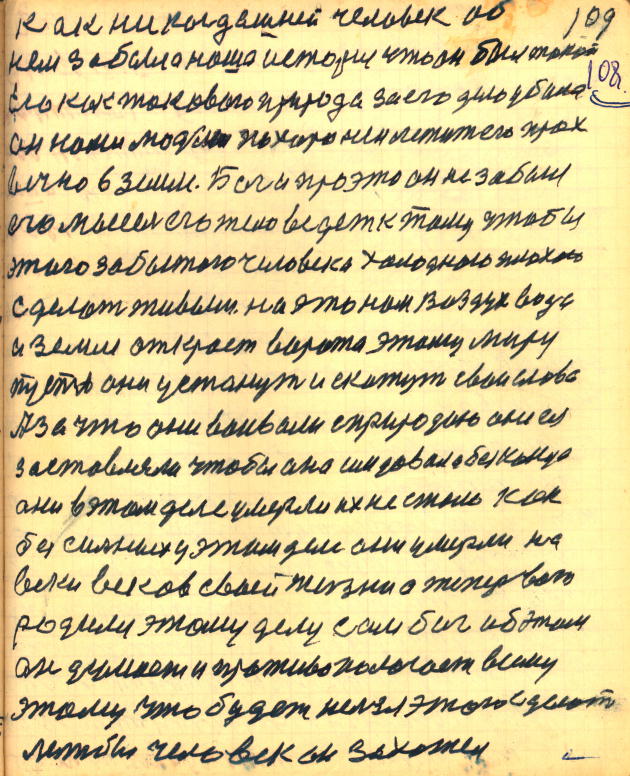 как никогдашней человек об 109
нем забыла наша история что он был такой 108
его как такового природа за его дело убила
он нами людьми похоронен летит его прах
вечно в земле. Бог и про это он не забыл
его мысля его тело ведет к тому чтобы
этого забытого человека холодного плохого
сделат живым. на это нам воздух вода
и земля откроет ворота этому миру
пусть они устанут и скажут свои слова
А за что они воивали с природою они ея
заставляли чтобы она им давала без конца
они в этом деле умерли их не стало как
бы сильных у этом деле они умерли на
веки веков своей жизни а теперь воск
родили этому делу сам бог об этом
он думает и противополагает всему
этому что будет нельзя этого сделат
летбы человек он захотел